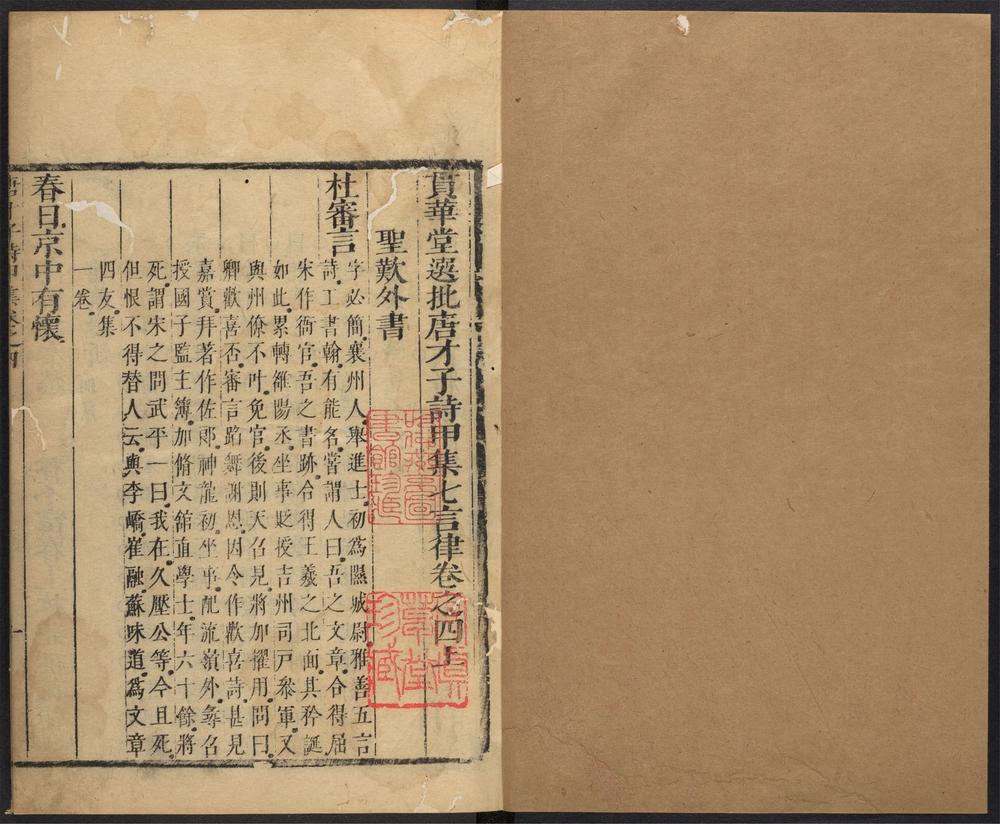 貫華堂選批唐才子詩甲集七言律卷之四上
聖歎外書
杜審言
字必簡襄州人舉進士初爲隰城尉雅善五言
詩工書翰有能名嘗謂人曰吾之文章合得屈
宋作衙官吾之書跡合得王羲之北面其矜誕
如此累轉雒陽丞坐事貶授吉州司戶叅軍又
與州僚不叶免官後則天召見將加擢用問曰
卿歡喜否審言蹈舞謝恩因令作歡喜詩甚見
嘉賞拜著作佐郎神龍初坐事配流嶺外尋召
授國子監主簿加脩文館直學士年六十餘將
死謂宋之問武平一曰我在久壓公等今且死
但恨不得替人云與李嶠崔融蘇味道爲文章
四友集
一卷
春日京中有懷
唐才子詩甲集卷之四
一
珍藏